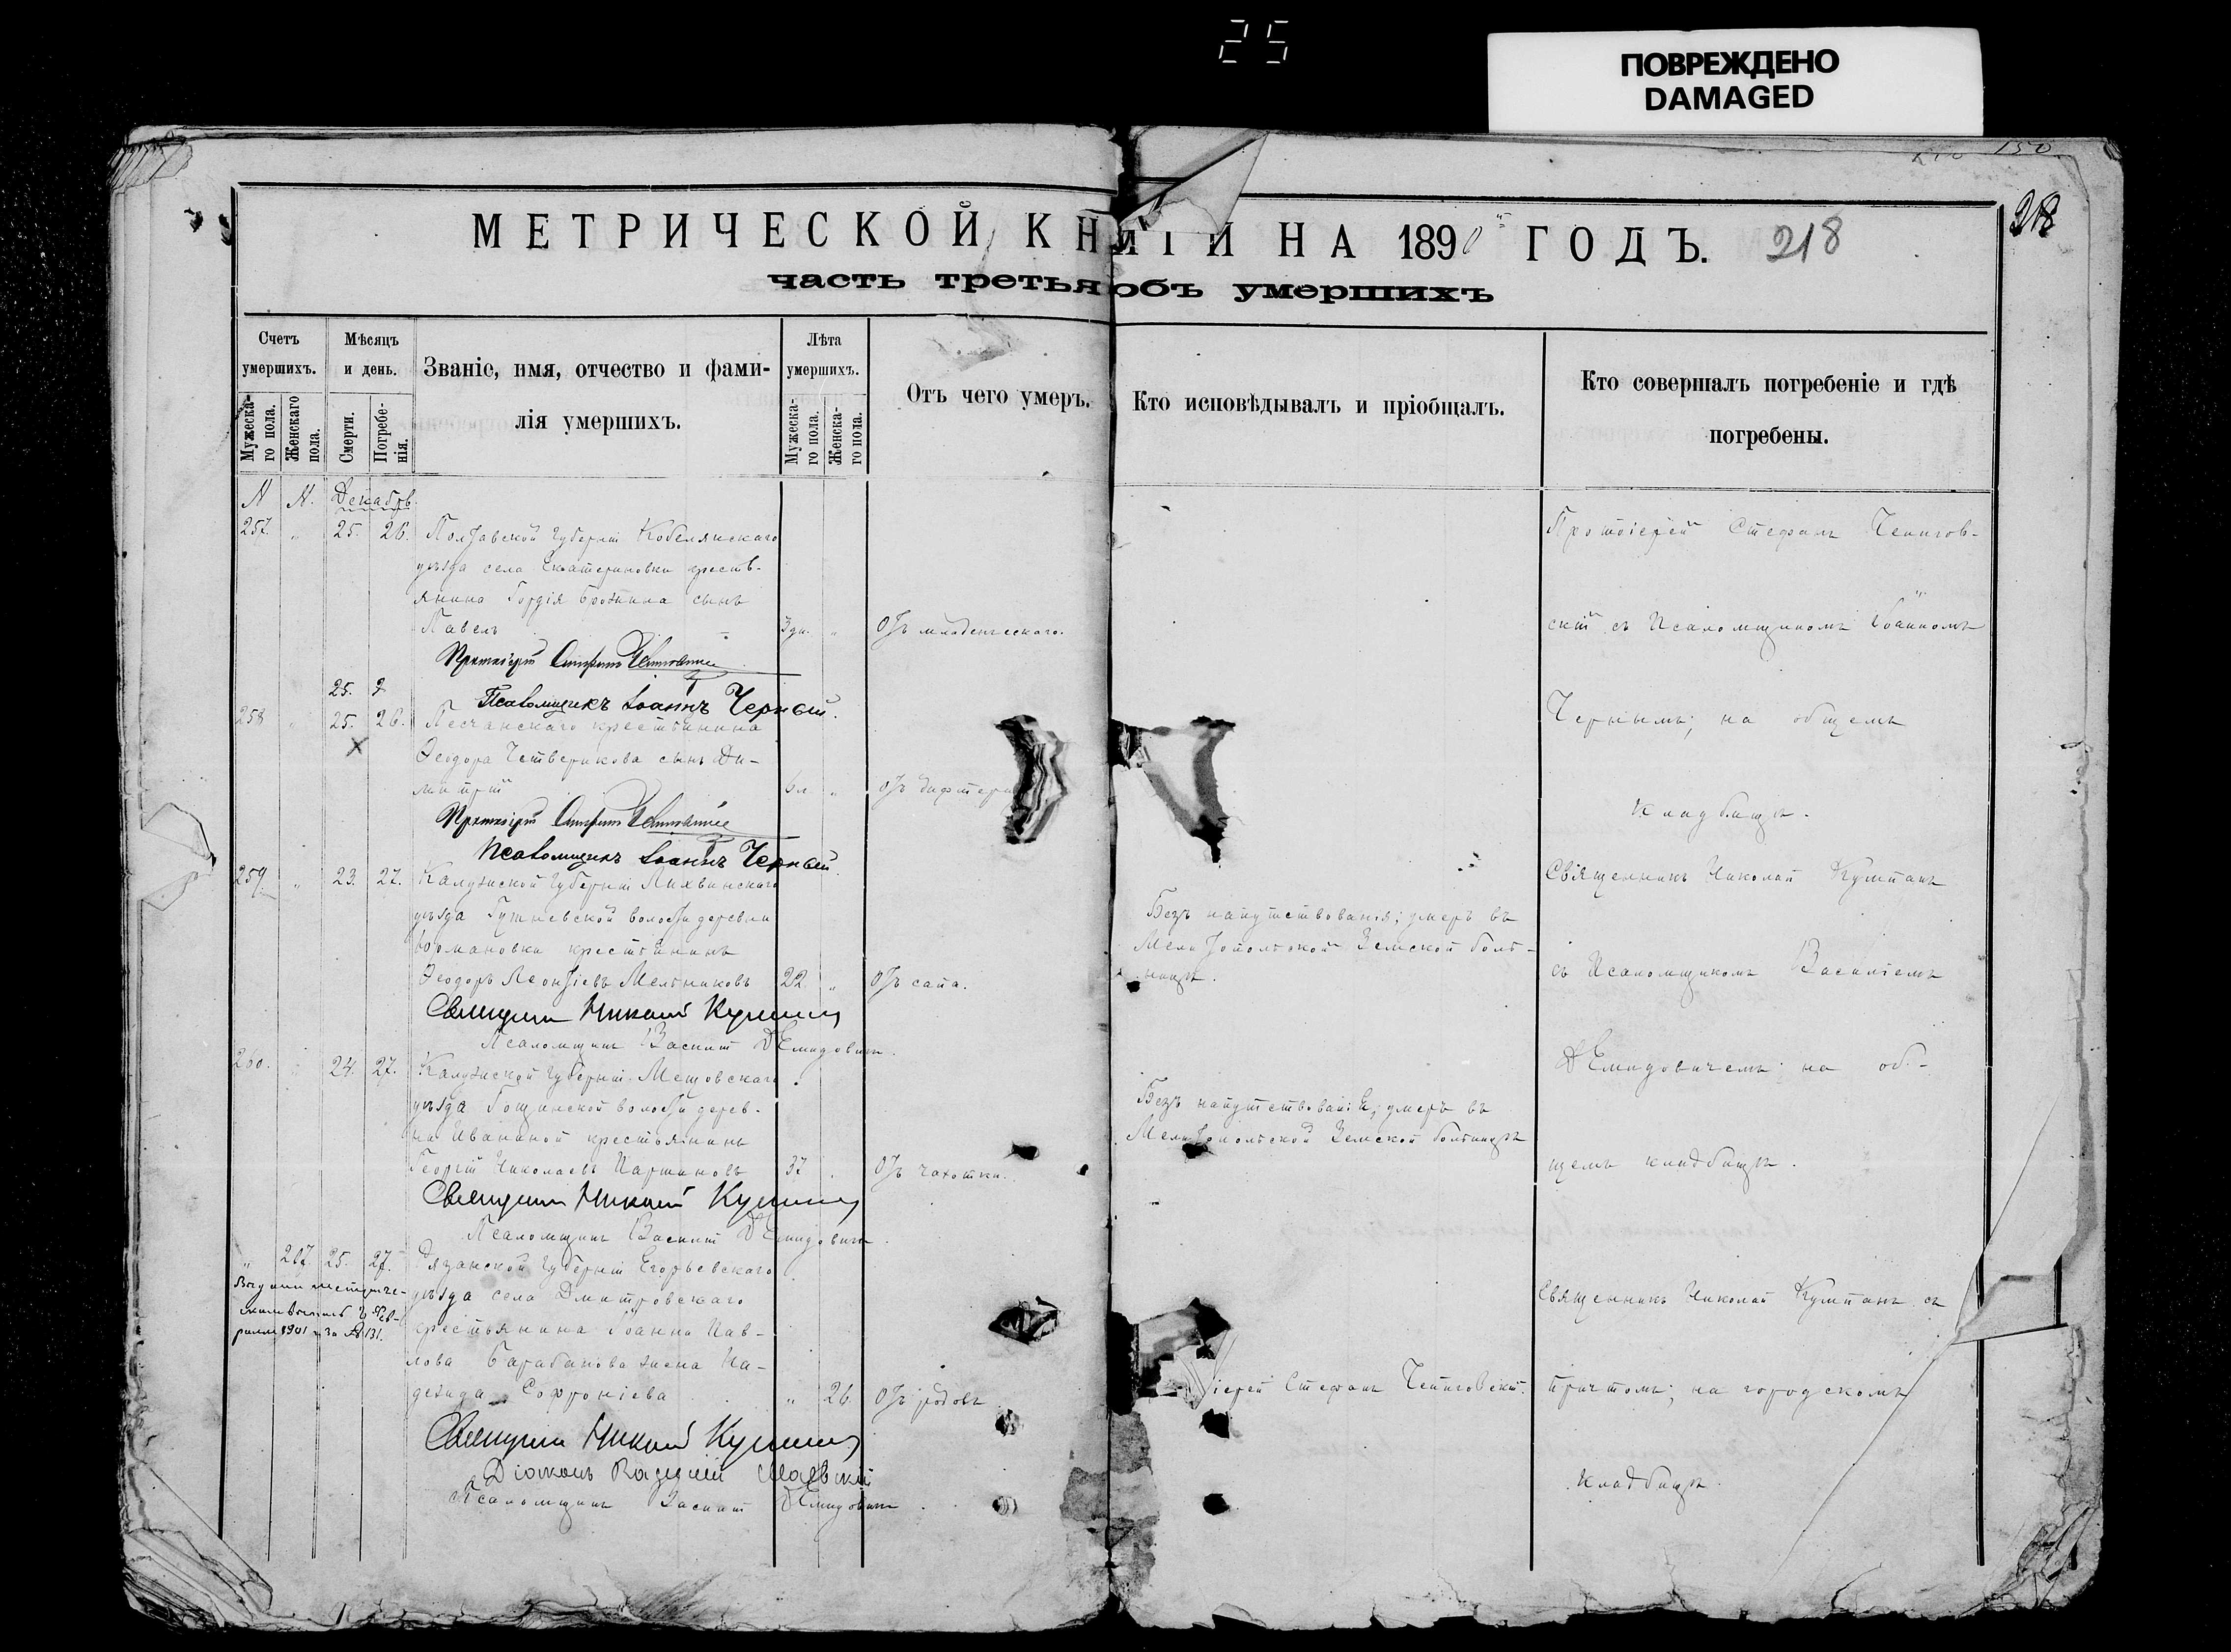 25
ПОВРЕЖДЕНО
DAMAGED
150
218
МЕТРИЧЕСКОЙ КНИГИ НА 1890й ГОДЪ. 218
часть третья объ умершихъ
Счетъ умершихъ.
Мужеска-го пола.
Женскаго пола.
Мѣсяцъ и день.
Смерти.
Погребе-нія.
Званіе, имя, отчество и фами-
лія умершихъ.
Лѣта умершихъ.
Мужеска-го пола.
Женска-го пола.
Отъ чего умеръ.
Кто исповѣдывалъ и пріобщалъ.
Кто совершалъ погребеніе и гдѣ
погребены.
N N. Декабрь.
257. " 25. 26. Полтавской губерніи Кобелякскаго
уѣзда села Екатериновки кресть-
янина Гордія сынъ
Павелъ 3 дн. " Отъ младенческаго.
Протоіерей Стефанъ
Псаломщикъ Іоаннъ Черный.
Протоіерей Стефанъ
скій съ Псаломщикомъ Іоанномъ
Чернымъ; на общемъ
кладбищѣ.
25. 2
258 " 25. 26. Песчанскаго крестьянина
Ѳеодора Четверикова сынъ Ди-
митрій 6 л. " Отъ
Протоіерей Стефанъ
Псаломщикъ Іоаннъ Черный.
259. " 23. 27. Калужской губерніи Лихвинскаго
уѣзда волости деревни
крестьянинъ
Ѳеодоръ Леонтіевъ Мельниковъ 22 " Отъ сапа.
Священникъ Николай
Псаломщикъ Василій Демидовичъ.
Безъ напутствованія; умеръ въ
Мелитопольской Земской боль-
ницѣ.
Священникъ Николай
съ Псаломщикомъ Василіемъ
Демидовичемъ; на об-
щемъ кладбищѣ.
260. " 24. 27. Калужской губерніи Мещовскаго
уѣзда волости дерев-
ни крестьянинъ
Георгій Николаевъ 37 . Отъ чахотки.
Священникъ Николай
Псаломщикъ Василій Демидовичъ.
Безъ напутствованія; умеръ въ
Мелитопольской Земской больницѣ
" 207. 25. 27. Рязанской губерніи Егорьевскаго
уѣзда села Дмитровскаго
крестьянина Іоанна Пав-
лова Барабанова жена На-
дежда Софроніева " 26. Отъ родовъ
1901 г. за № 131.
Священникъ Николай
Діаконъ
Псаломщикъ Василій Демидовичъ.
іерей Стефанъ
Священникъ Николай съ
причтомъ; на городскомъ
кладбищѣ.